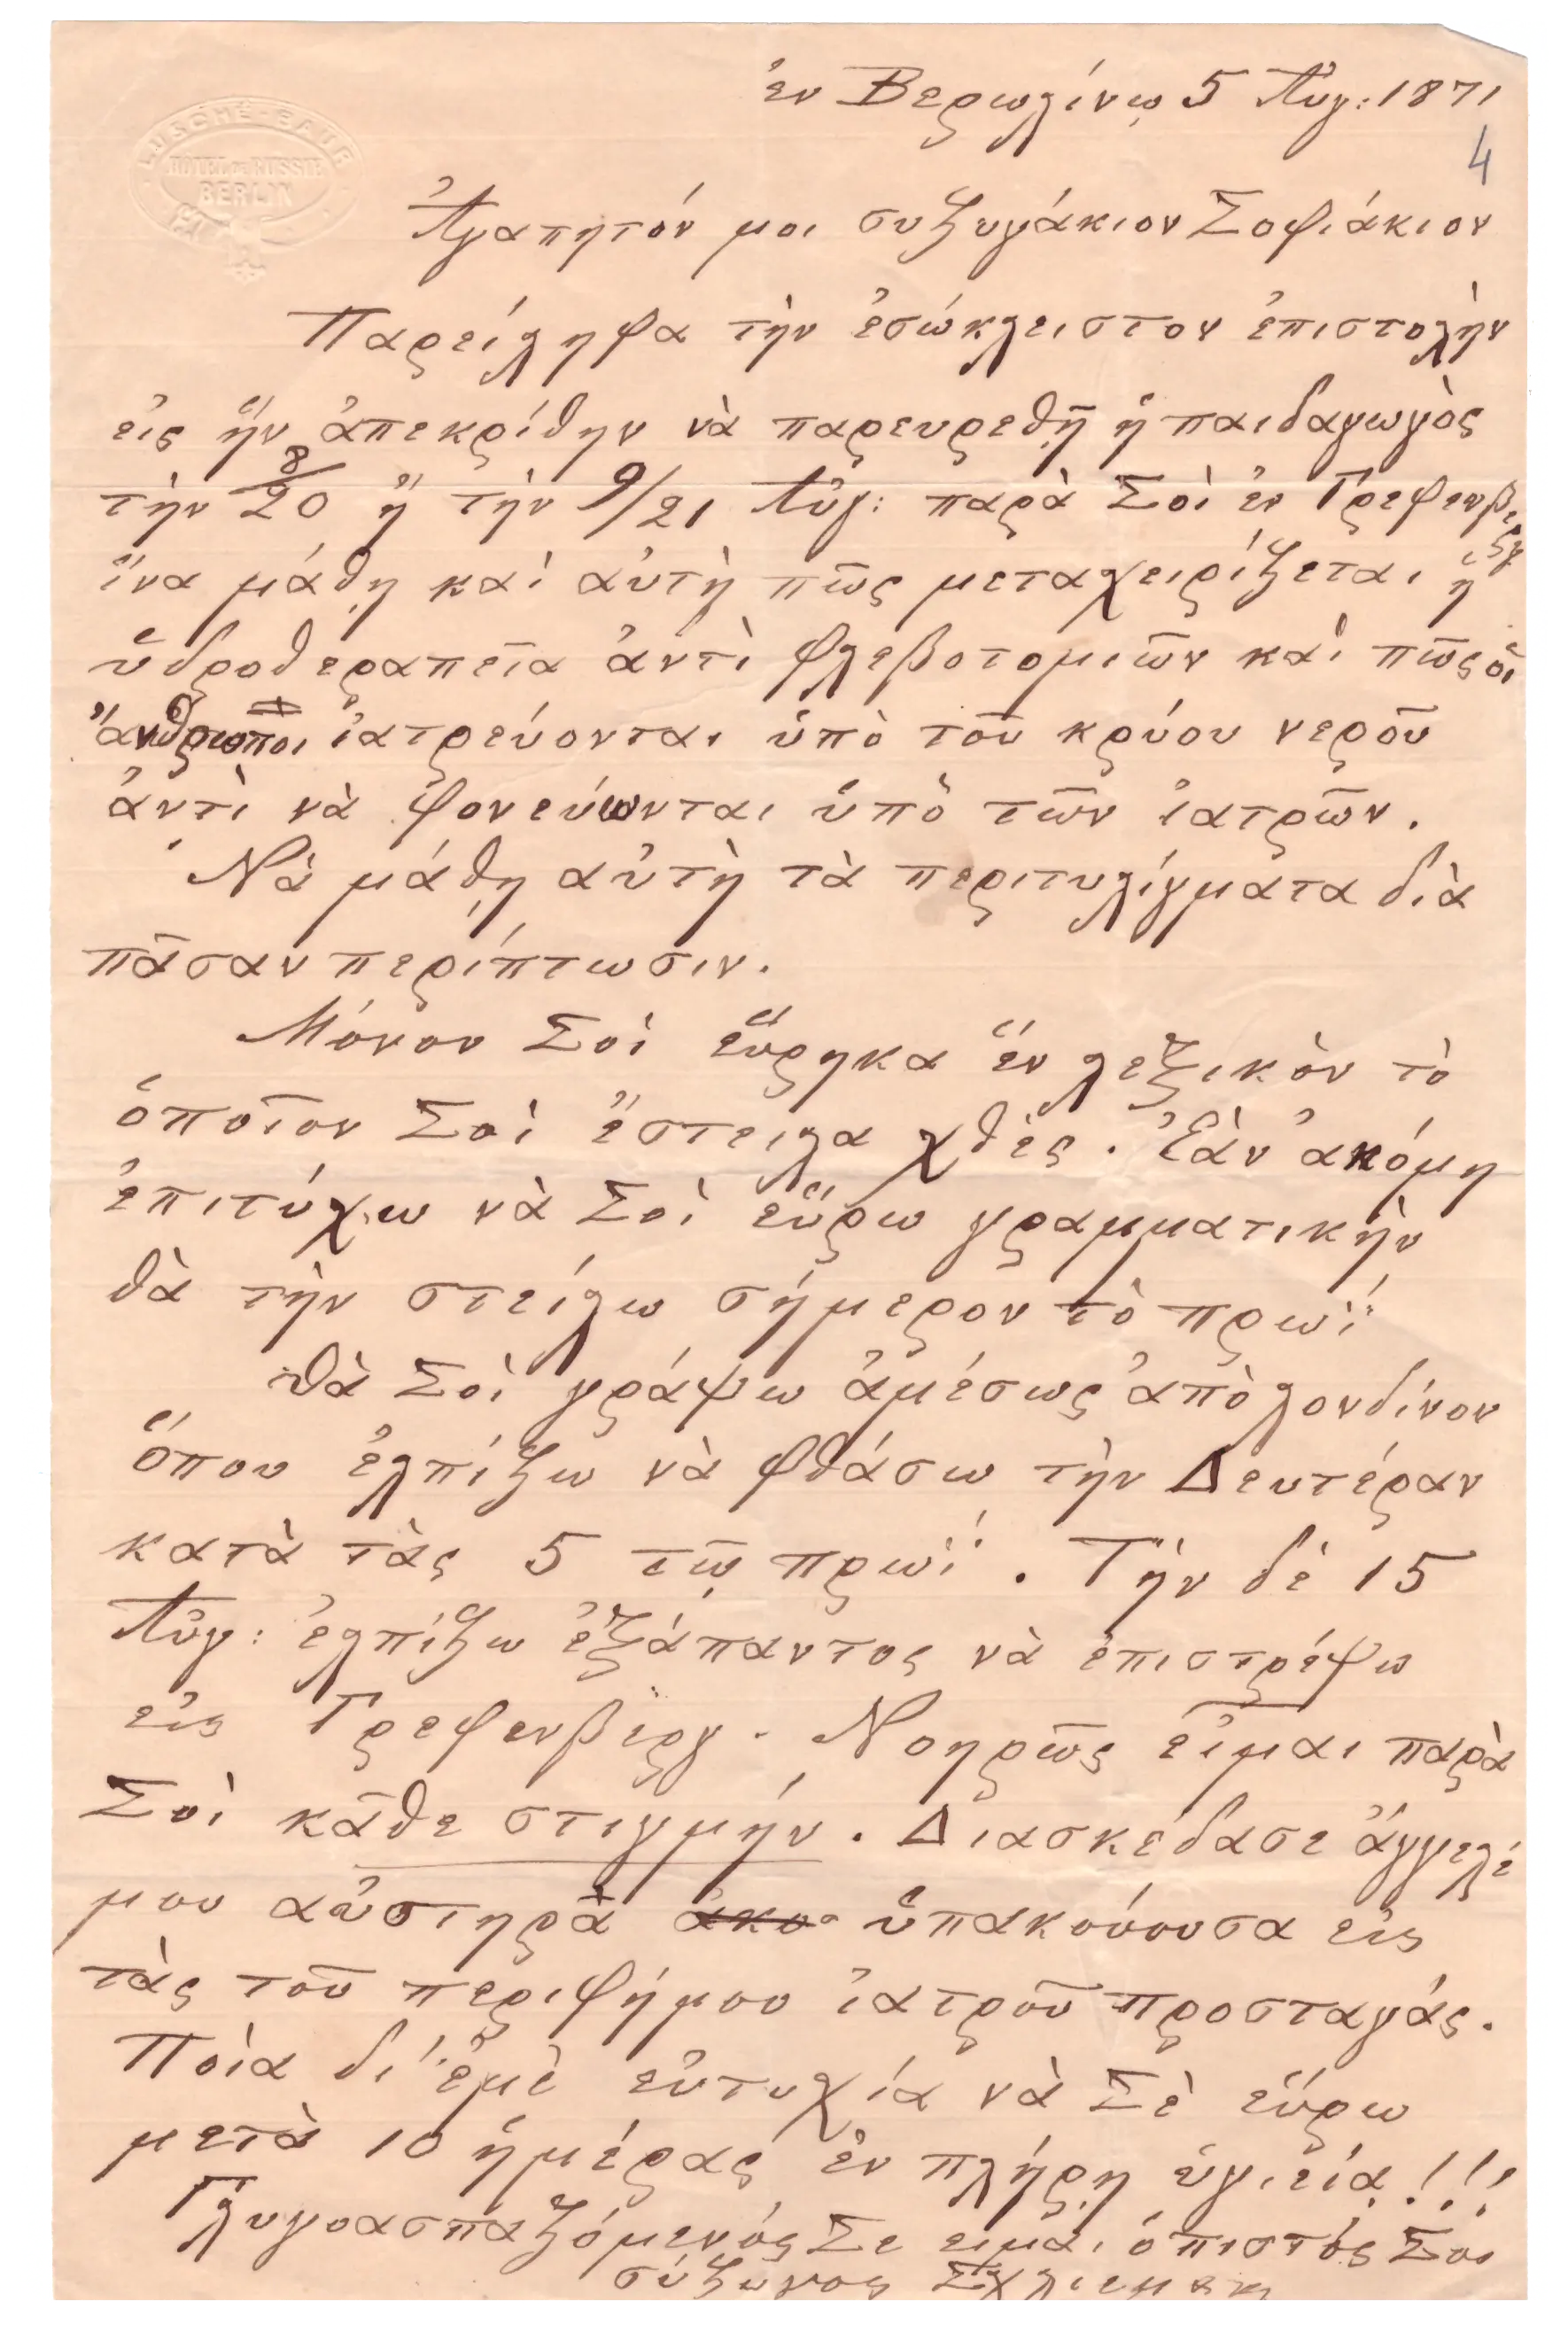 ἐν Βερωλίνῳ 5 Αὐγ: 1871
4
LUSCHÉ-BAUR
HÔTEL DE RUSSIE
BERLIN
Ἀγαπητόν μοι συζυγάκιον Σοφιάκιον
Παρείληφα τὴν ἐσώκλειστον ἐπιστολὴν
εἰς ἥν ἀπεκρίθην νὰ παρευρεθῇ ἡ παιδαγωγὸς
τὴν 8/20 ἤ τὴν 9/21 Αὐγ: παρὰ Σοὶ ἐν Γρεφενβεργ
ἵνα μάθῃ καὶ αὐτὴ πῶς μεταχειρίζεται ἡ
ὑδροθεραπεῖα ἀντὶ φλεβοτομιῶν καὶ πῶς οἱ
ἄνθρωποι ἰατρεύονται ὑπὸ τοῦ κρύου νεροῦ
ἀντὶ νὰ φονεύωνται ὑπὸ τῶν ἰατρῶν.
Νὰ μάθῃ αὐτὴ τὰ περιτυλίγματα διὰ
πᾶσαν περίπτωσιν.
Μόνον Σοὶ εὕρηκα ἕν λεξικὸν τὸ
ὁποῖον Σοὶ ἔστειλα χθὲς. Ἐὰν ἀκόμη
ἐπιτύχω νὰ Σοὶ εὕρω γραμματικὴν
θὰ τὴν στείλω σήμερον τὸ πρωΐ
Θὰ Σοὶ γράψω ἀμέσως ἀπὸ λονδίνον
ὅπου ἐλπίζω νὰ φθάσω τὴν Δευτέραν
κατὰ τὰς 5 τῷ πρωΐ. Τὴν δὲ 15
Αὐγ: ἐλπίζω ἐξάπαντος νὰ ἐπιστρέψω
εἰς Γρεφενβεργ. Νοηρῶς εἶμαι παρὰ
Σοὶ κᾶθε στιγμήν. Διασκέδασε ἄγγελέ
μου αὐστηρᾶ ἀκο ὑπακούουσα εἰς
τὰς τοῦ περιφήμου ἰατροῦ προσταγάς.
Ποία δι' ἐμὲ εὐτυχία νὰ Σὲ εὕρω
μετὰ 10 ἡμέρας ἐν πλήρῃ ὑγιείᾳ!!!
Γλυγοασπαζόμενός Σε εἶμαι ὁ πιστός Σοι
σύζυγος Σχλιεμαν